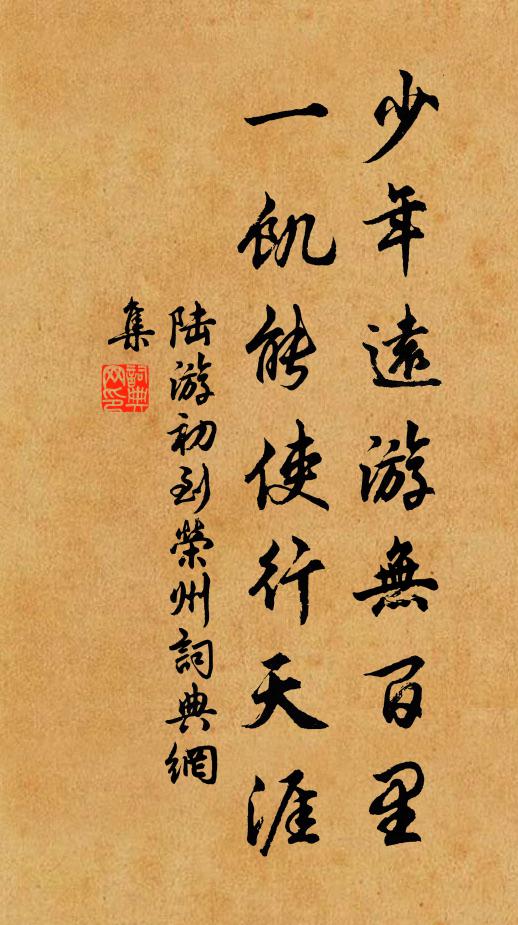 少年遠游無百里
一飢能使行天涯
陸游初到榮州詞典網
集
詞典
网印